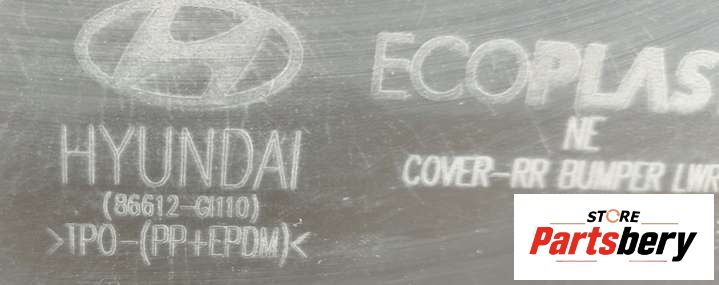 HYUNDAI
(86612-GI110)
>TPO-(PP+EPDM)<
ECOPLAS
NE
COVER-RR BUMPER LWR
STORE
Partsbery